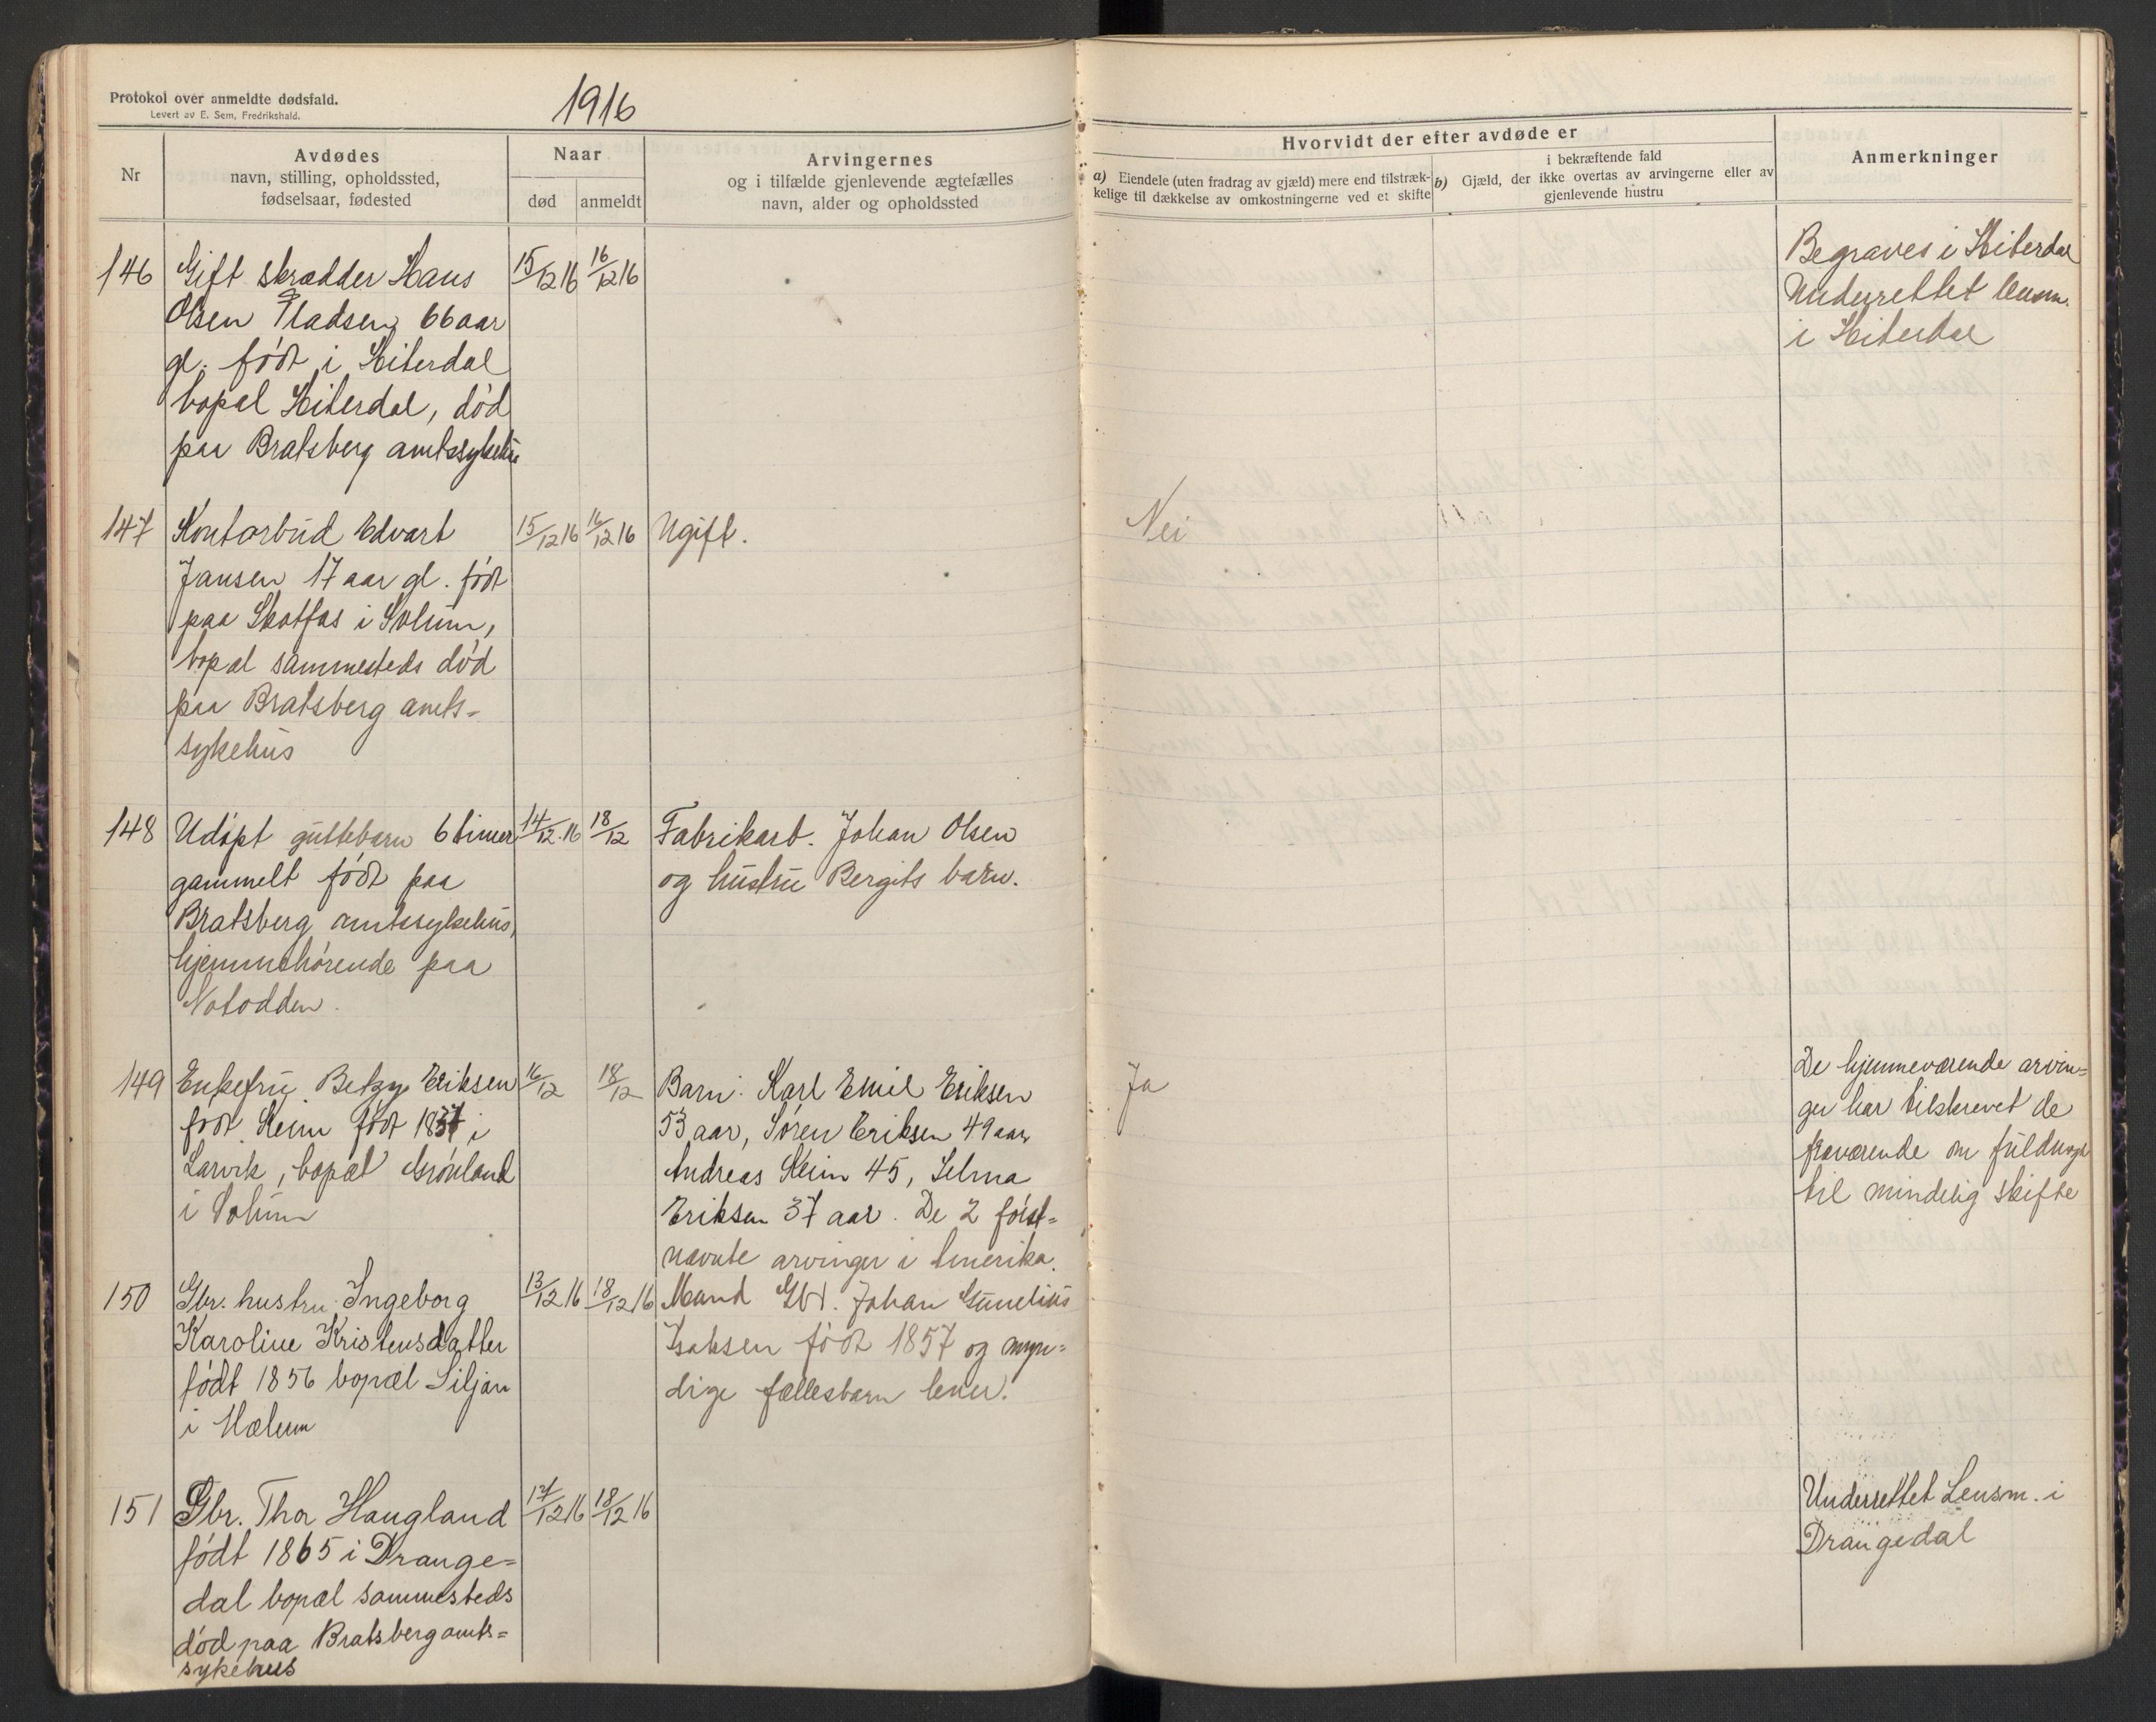 Protokol over anmeldte dødsfald.
Levert av E. Sem, Fredrikshald.
1916
Nr
Avdødes
navn, stilling, opholdssted,
fødselsaar, fødested
Naar
død
anmeldt
Arvingernes
og i tilfælde gjenlevende ægtefælles
navn, alder og opholdssted
Hvorvidt der efter avdøde er
a) Eiendele (uten fradrag av gjæld) mere end tilstræk-
kelige til dækkelse av omkostningerne ved et skifte
i bekræftende fald
b) Gjæld, der ikke overtas av arvingerne eller av
gjenlevende hustru
Anmerkninger
146
Gift skrædder Hans
Olsen Pladsen 66 aar
gl. født i Hiterdal
bopæl Hiterdal, død
paa Bratsberg amtssykehus
15/12 16
16/12 16
Begraves i Hiterdal
Underrettet lensm.
i Hiterdal
147
Kontorbud Edvart
Jansen 17 aar gl. født
paa Skotfos i Solum,
bopæl sammesteds død
paa Bratsberg amts-
sykehus
15/12 16
16/12 16
Ugift.
Nei
148
Udøpt guttebarn 6 timer
gammelt født paa
Bratsberg amtssykehus,
hjemmehørende paa
Notodden.
14/12.16
18/12
Fabrikarb. Johan Olsen
og hustru Bergits barn.
149
Enkefru Betzy Eriksen
født Heim født 1837 i
Larvik, bopæl Grønland
i Solum
16/12
18/12
Barn: Karl Emil Eriksen
53 aar, Søren Eriksen 49 aar,
Andreas Heim 45, Selma
Eriksen 37 aar. De 2 først-
nævnte arvinger i Amerika.
Ja
De hjemmeværende arvin-
ger har tilskrevet de
fraværende om fuldmagt
til mindelig skifte
150
Gbr. hustru Ingeborg
Karoline Kristensdatter
født 1856 bopæl Siljan
i Mælum
13/12 16
18/12 16
Mand Gbr. Johan Gunelius
Isaksen født 1857 og myn-
dige fællesbarn lever.
151
Gbr. Thor Haugland
født 1865 i Drange-
dal bopæl sammesteds
død paa Bratsberg amts-
sykehus
17/12 16
18/12 16
Underrettet Lensm. i
Drangedal